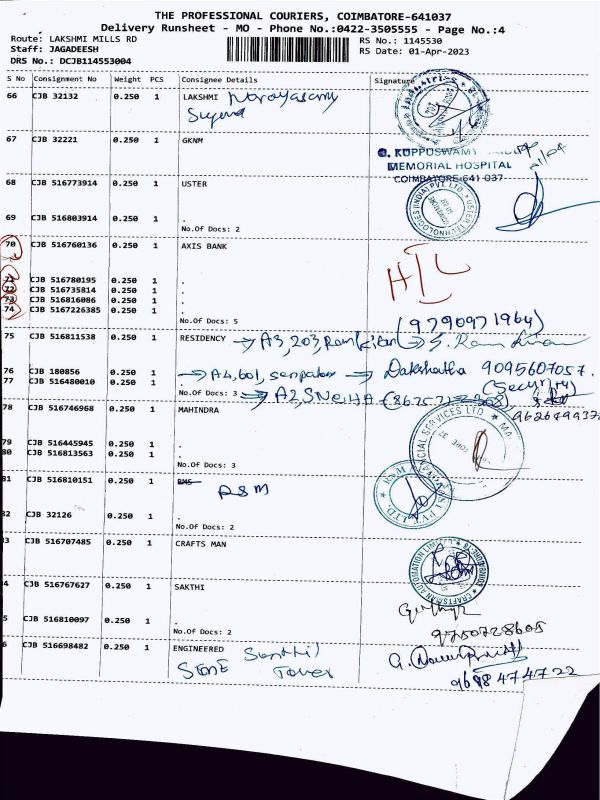 THE PROFESSIONAL COURIERS, COIMBATORE-641037
Delivery Runsheet - MO - Phone No.:0422-3505555 - Page No.:4
Route: LAKSHMI MILLS RD RS No.: 1145530
Staff: JAGADEESH RS Date: 01-Apr-2023
DRS No.: DCJB114553004
S No Consignment No Weight PCS Consignee Details Signature
66 CJB 32132 0.250 1 LAKSHMI Narayasamy
67 CJB 32221 0.250 1 GKNM
G. KUPPUSWAMY
MEMORIAL HOSPITAL
COIMBATORE-641 037
68 CJB 516773914 0.250 1 USTER
USTER TECHNOLOGIES (INDIA) PVT. LTD.
69 CJB 516803914 0.250 1 .
No.Of Docs: 2
70 CJB 516760136 0.250 1 AXIS BANK
71 CJB 516780195 0.250 1 .
72 CJB 516735814 0.250 1 .
73 CJB 516816086 0.250 1 .
74 CJB 5167226385 0.250 1 .
No.Of Docs: 5
(9790971964)
75 CJB 516811538 0.250 1 RESIDENCY A3, 203,
76 CJB 180856 0.250 1 . A4, 601, Dakshatha 9095607057.
77 CJB 516480010 0.250 1 .
(Security)
No.Of Docs: 3 A2,
78 CJB 516746968 0.250 1 MAHINDRA
79 CJB 516445945 0.250 1 .
80 CJB 516813563 0.250 1 .
No.Of Docs: 3
81 CJB 516810151 0.250 1 RSM
32 CJB 32126 0.250 1 .
No.Of Docs: 2
3 CJB 516707485 0.250 1 CRAFTS MAN
CRAFTSMAN AUTOMATION LIMITED
4 CJB 516767627 0.250 1 SAKTHI
5 CJB 516810097 0.250 1 .
No.Of Docs: 2
9750728605
6 CJB 516698482 0.250 1 ENGINEERED Senthil
STONE Tower
9698474722